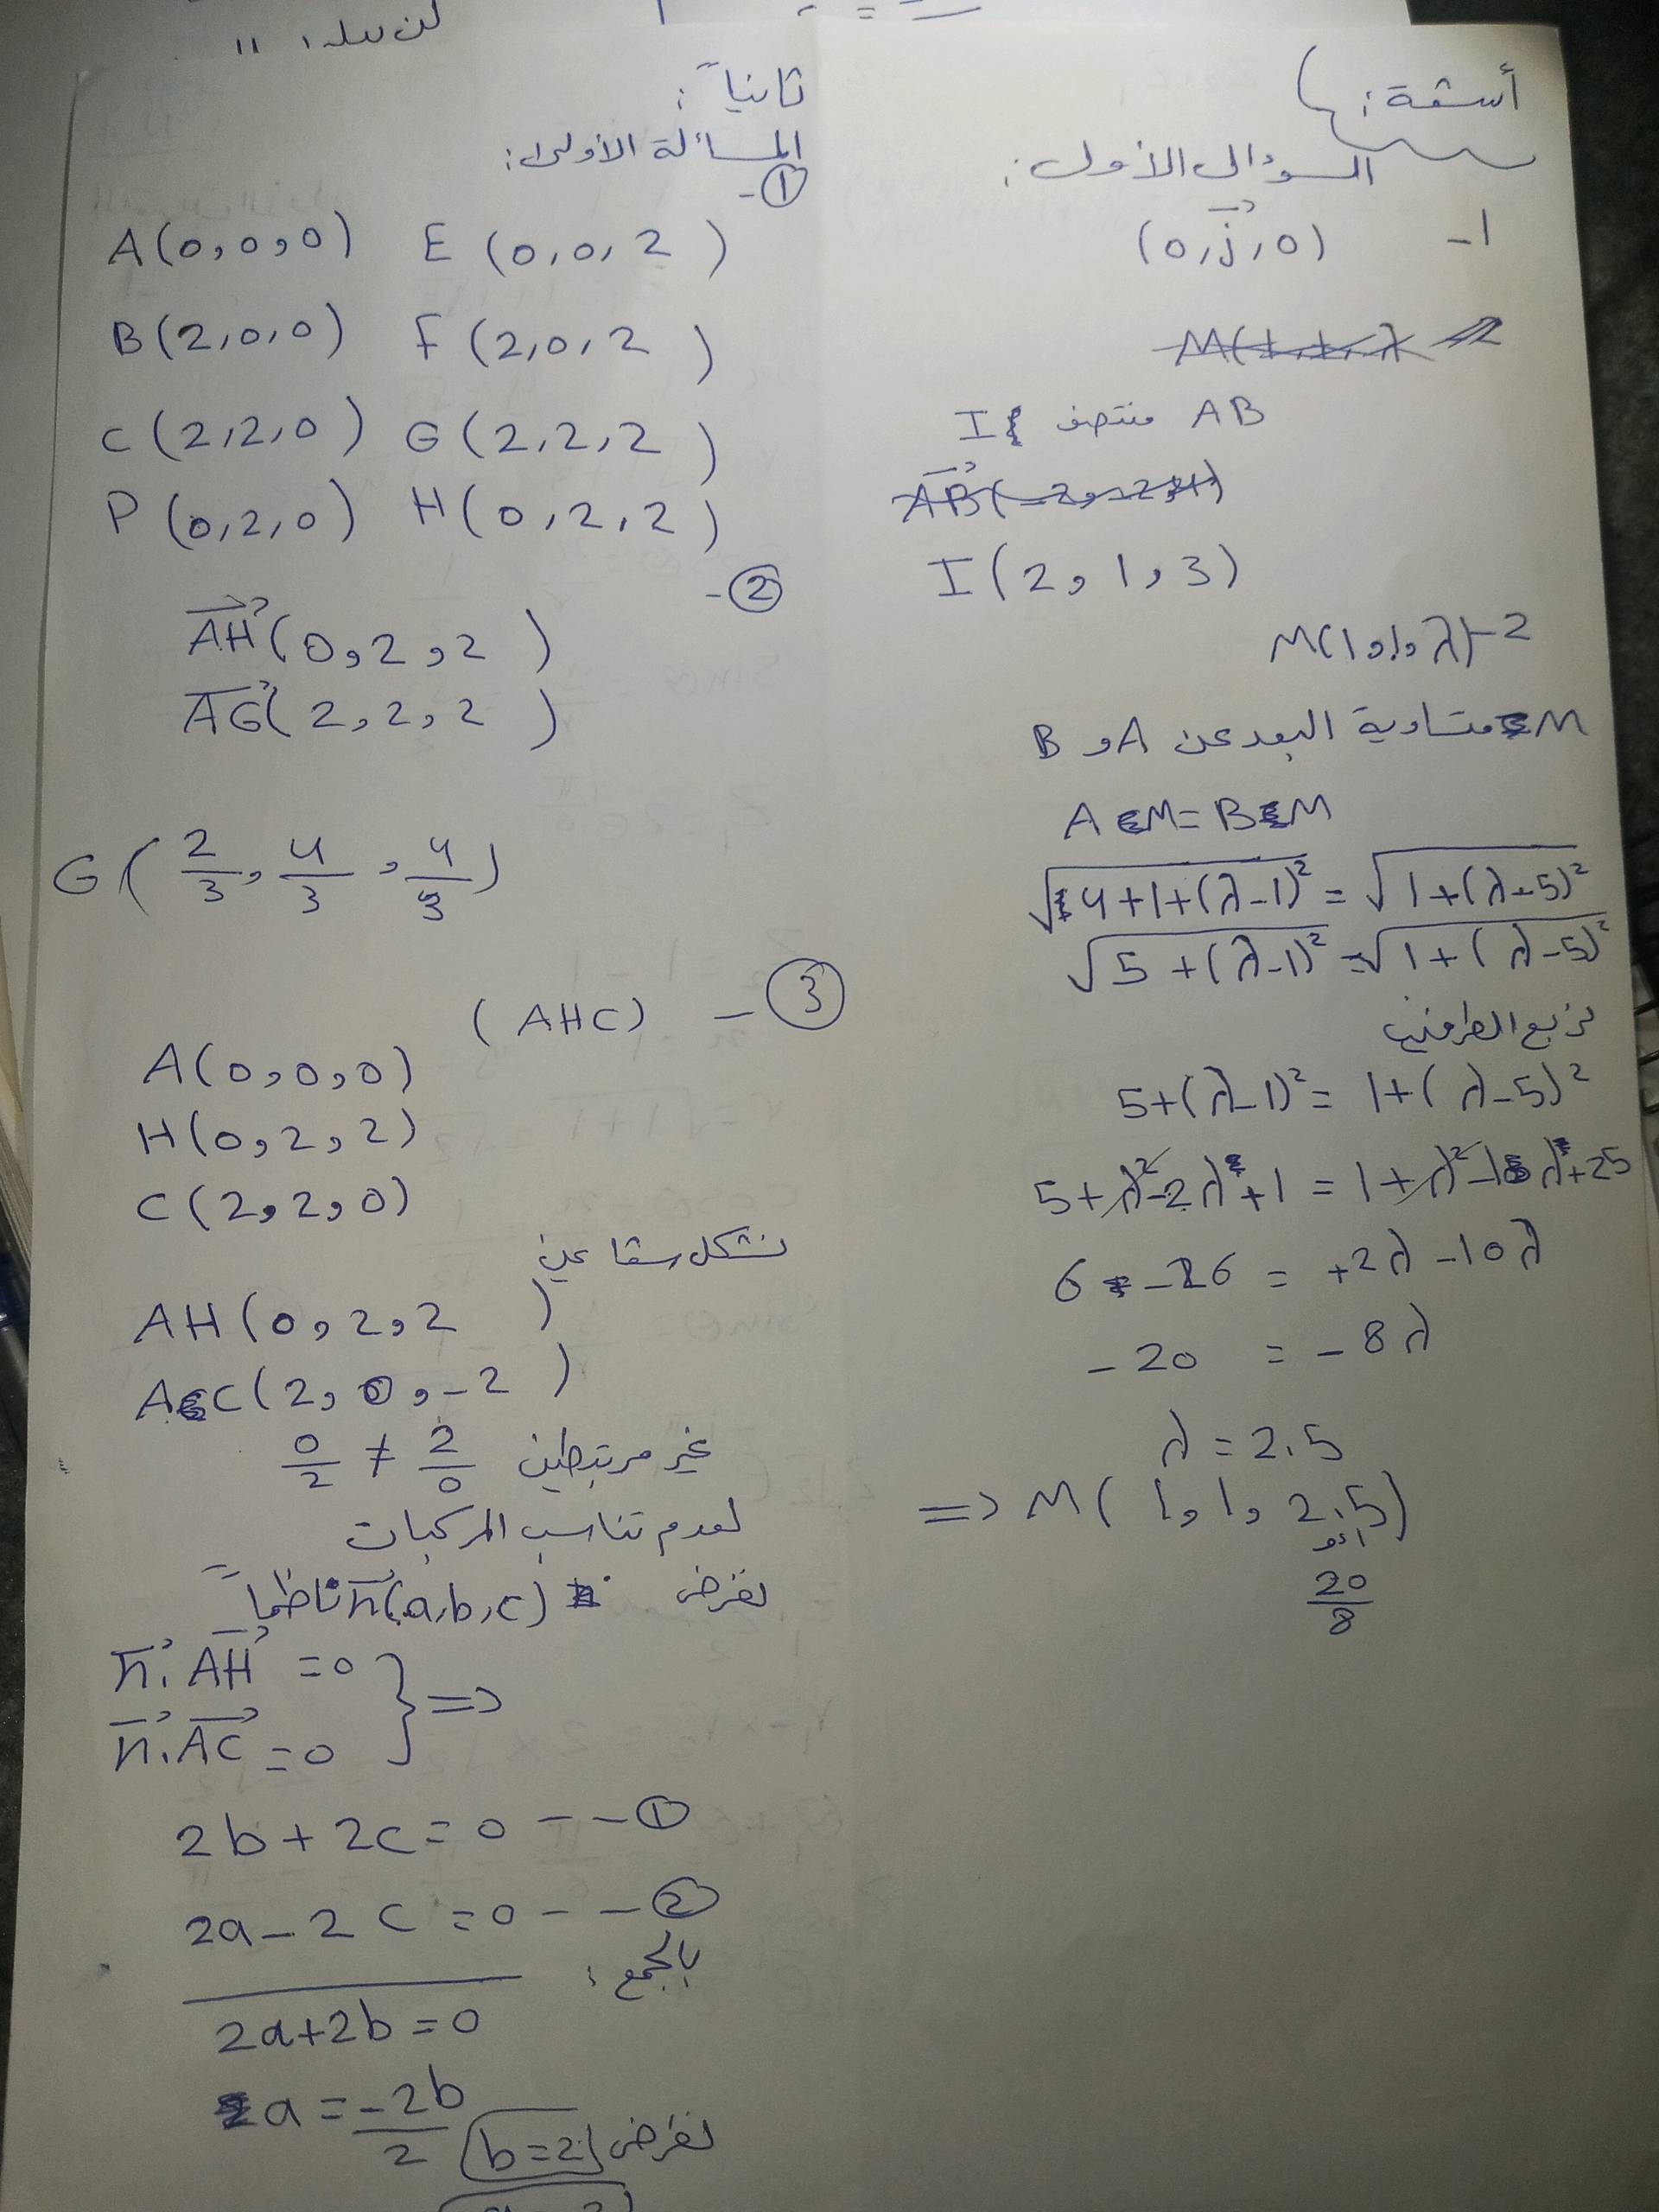 أسئقة:
السؤال الأول:
1- (0,j,0)
I منتصف AB
I(2,1,3)
2- M(1,1,λ)
M متساوية البعد عن A و B
AM=BM
√4+1+(λ-1)² = √1+(λ-5)²
√5+(λ-1)² = √1+(λ-5)²
نربع الطرفين
5+(λ-1)² = 1+(λ-5)²
5+λ²-2λ+1 = 1+λ²-10λ+25
6-26 = +2λ-10λ
-20 = -8λ
λ = 2.5
=> M(1,1,2.5)
أو
20/8
ثانياً:
المسألة الأولى:
①-
A(0,0,0) E(0,0,2)
B(2,0,0) F(2,0,2)
C(2,2,0) G(2,2,2)
D(0,2,0) H(0,2,2)
②-
AH(0,2,2)
AG(2,2,2)
G(2/3, 4/3, 4/3)
③- (AHC)
A(0,0,0)
H(0,2,2)
C(2,2,0)
نشكل شعاعين
AH(0,2,2)
AC(2,0,-2)
0/2 ≠ 2/0 غير مرتبطين
لعدم تناسب المركبات
نفرض n(a,b,c) ناظماً
n.AH = 0
n.AC = 0 } =>
2b+2c=0 --①
2a-2c=0 --②
بالجمع:
2a+2b=0
a = -2b/2
نفرض b=2